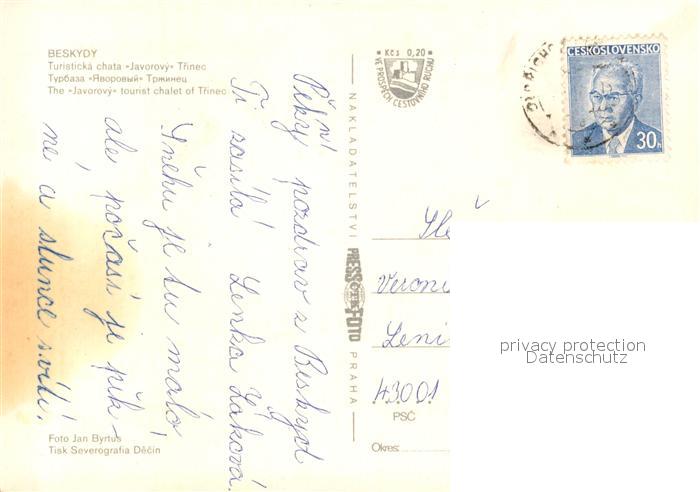 BESKYDY
Turistická chata »Javorový« Třinec
Турбаза »Яворовый« Тржинец
The »Javorový« tourist chalet of Třinec
Pěkný pozdrav z Beskyd
Ti posílá Lenka Žaková.
Sněhu je tu málo
ale počasí je pěk-
né a slunce svítí.
Foto Jan Byrtus
Tisk Severografia Děčín
Kčs 0,20
VE PROSPĚCH CESTOVNÍHO RUCHU
NAKLADATELSTVÍ
PRESSFOTO
PRAHA
ČESKOSLOVENSKO
30h
Sleč
Veroni
Leni
43001
PSČ
Okres:
privacy protection
Datenschutz